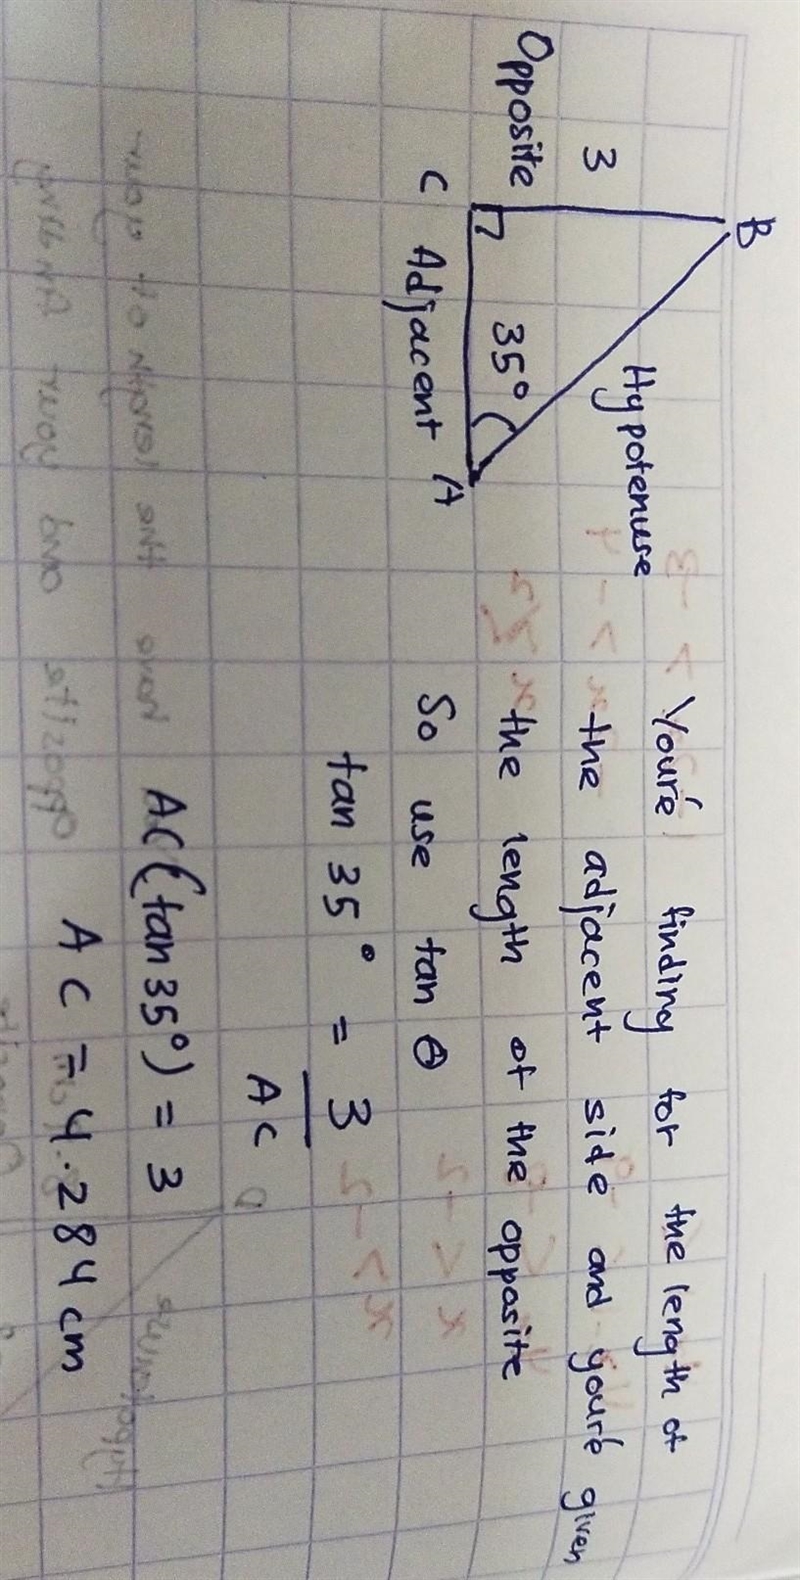 B
3
Hypotenuse
Opposite
35°
C Adjacent A
You're finding for the length of
the adjacent side and you're given
the length of the opposite
So use tan θ
tan 35° = 3
AC
AC(tan 35°) = 3
AC = 4.284 cm